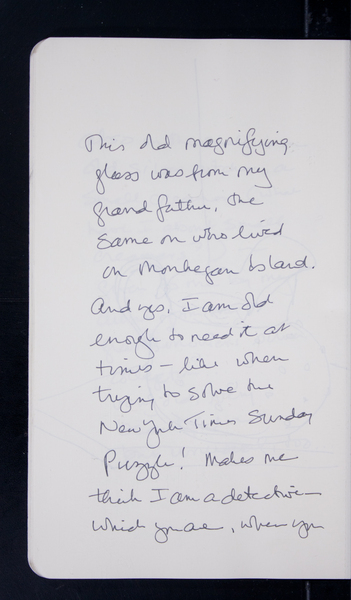 This old magnifying
glass was from my
grandfather, the
same on who lived
on Monhegan Island.
And yes, I am old
enough to need it at
times – like when
trying to solve the
New York Times Sunday
Puzzle! Makes me
think I am a detective
which you are, when you